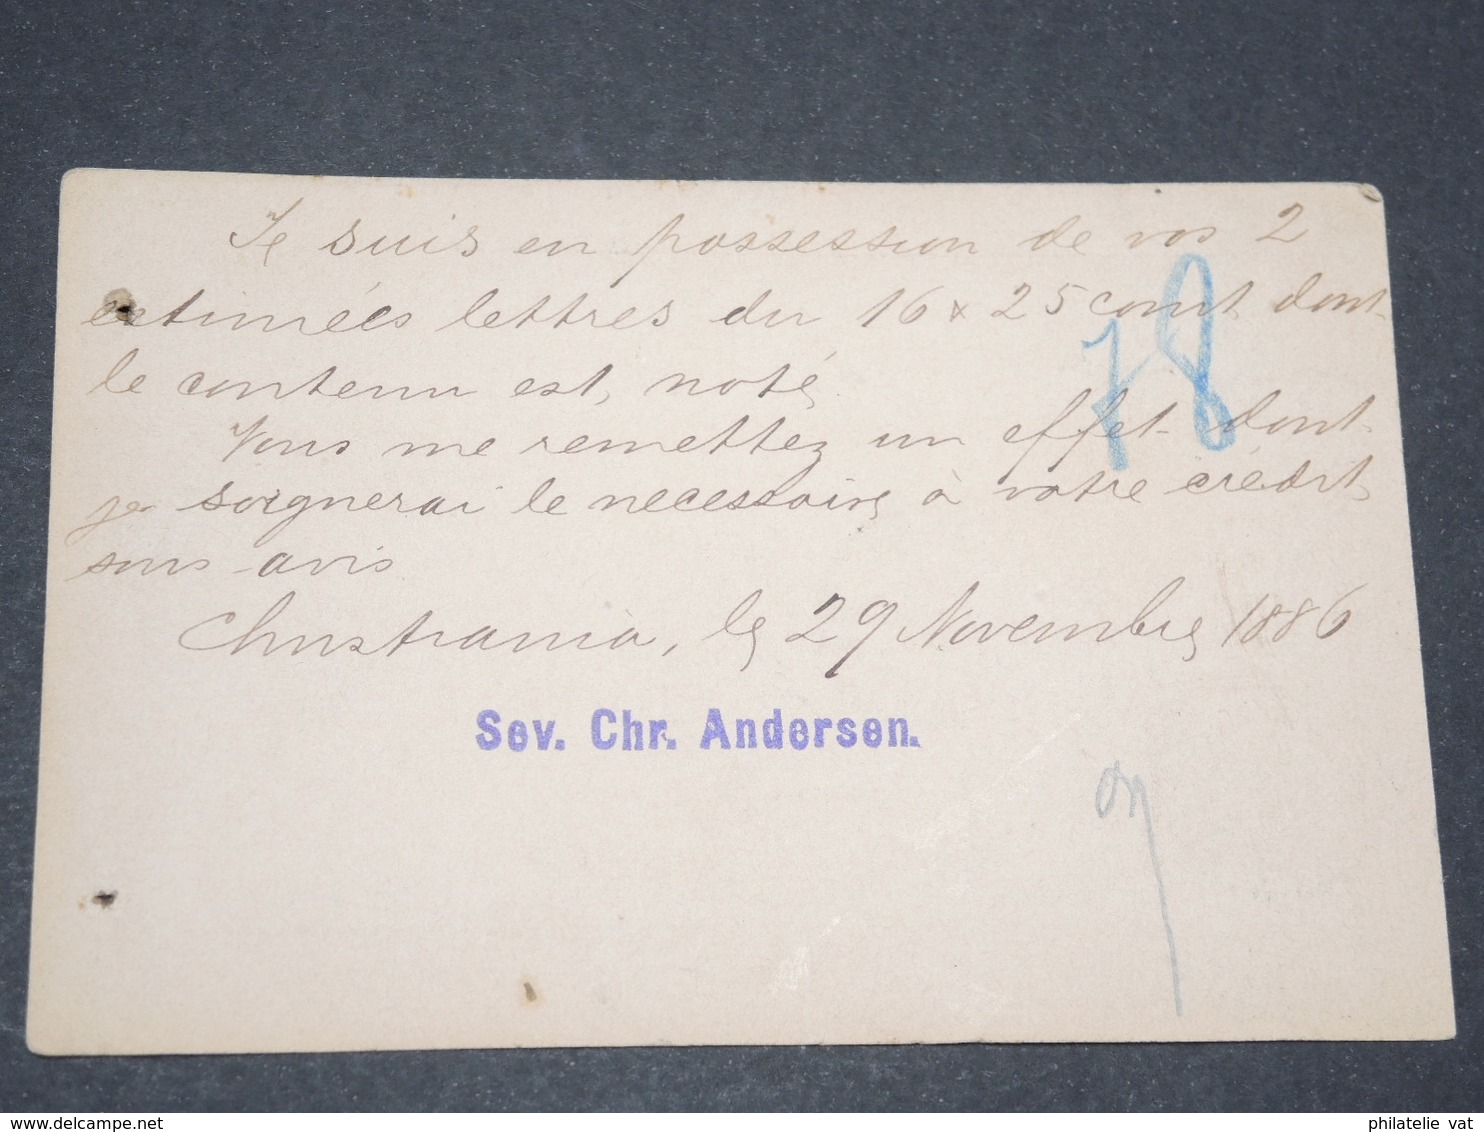 Je suis en possession de vos 2
estimées lettres du 16 & 25 cournt dont
le contenu est noté
Vous me remettez un effet dont
je soignerai le necessaire à votre crédit
sans avis
Christiania, le 29 Novembre 1886
Sev. Chr. Andersen.
78
philatelie vat
www.delcampe.net